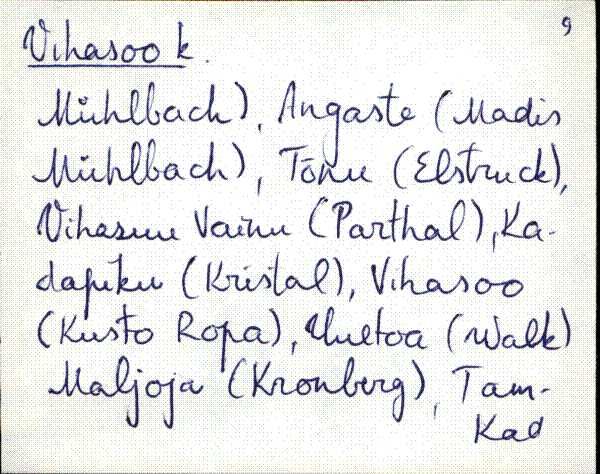 9
Vihasoo k.
Mühlbach), Angaste (Madis
Mühlbach), Tõnu (Elstruck),
Vihasuu Vainu (Parthal), Ka-
dapiku (Kristal), Vihasoo
(Kusto Ropa), Uuetoa (Walk)
Maljoja (Kronberg), Tam-
Kad